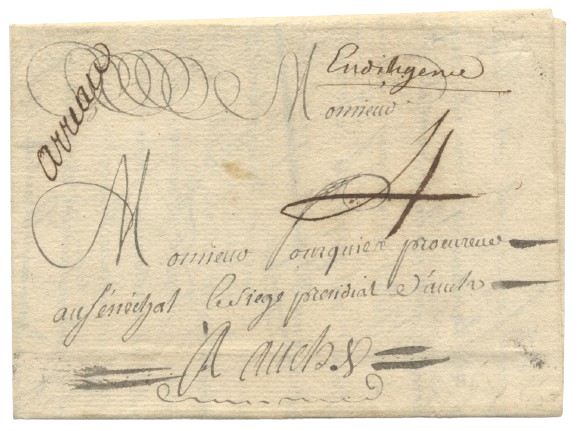 Endiligence
arreau
Monsieur
4
Monsieur Pourquier procureur
au Sénéchal & siege presidial d'auch
A auch